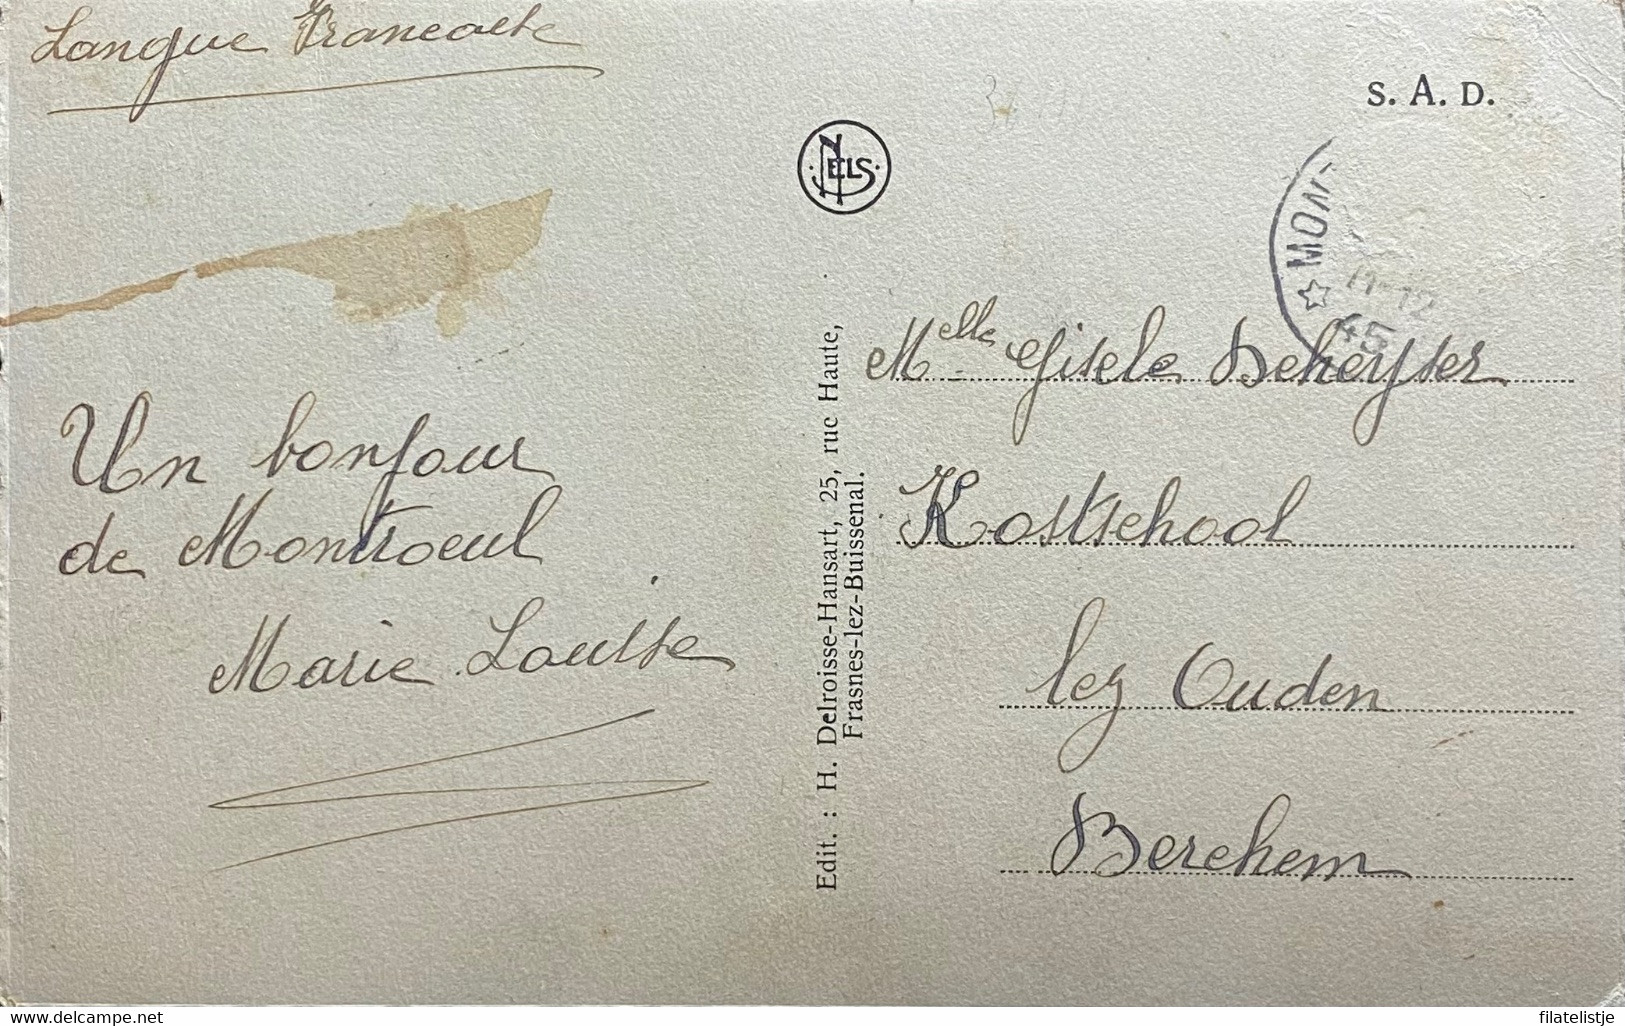 Langue Francaise
S. A. D.
NELS
MON
11-12
45
Un bonjour
de Montroeul
Marie Louise
Edit. : H. Delroisse-Hansart, 25, rue Haute,
Frasnes-lez-Buissenal.
Melle Gisele Dekeyser
Kostschool
lez Ouden
Berchem
www.delcampe.net
filatelistje